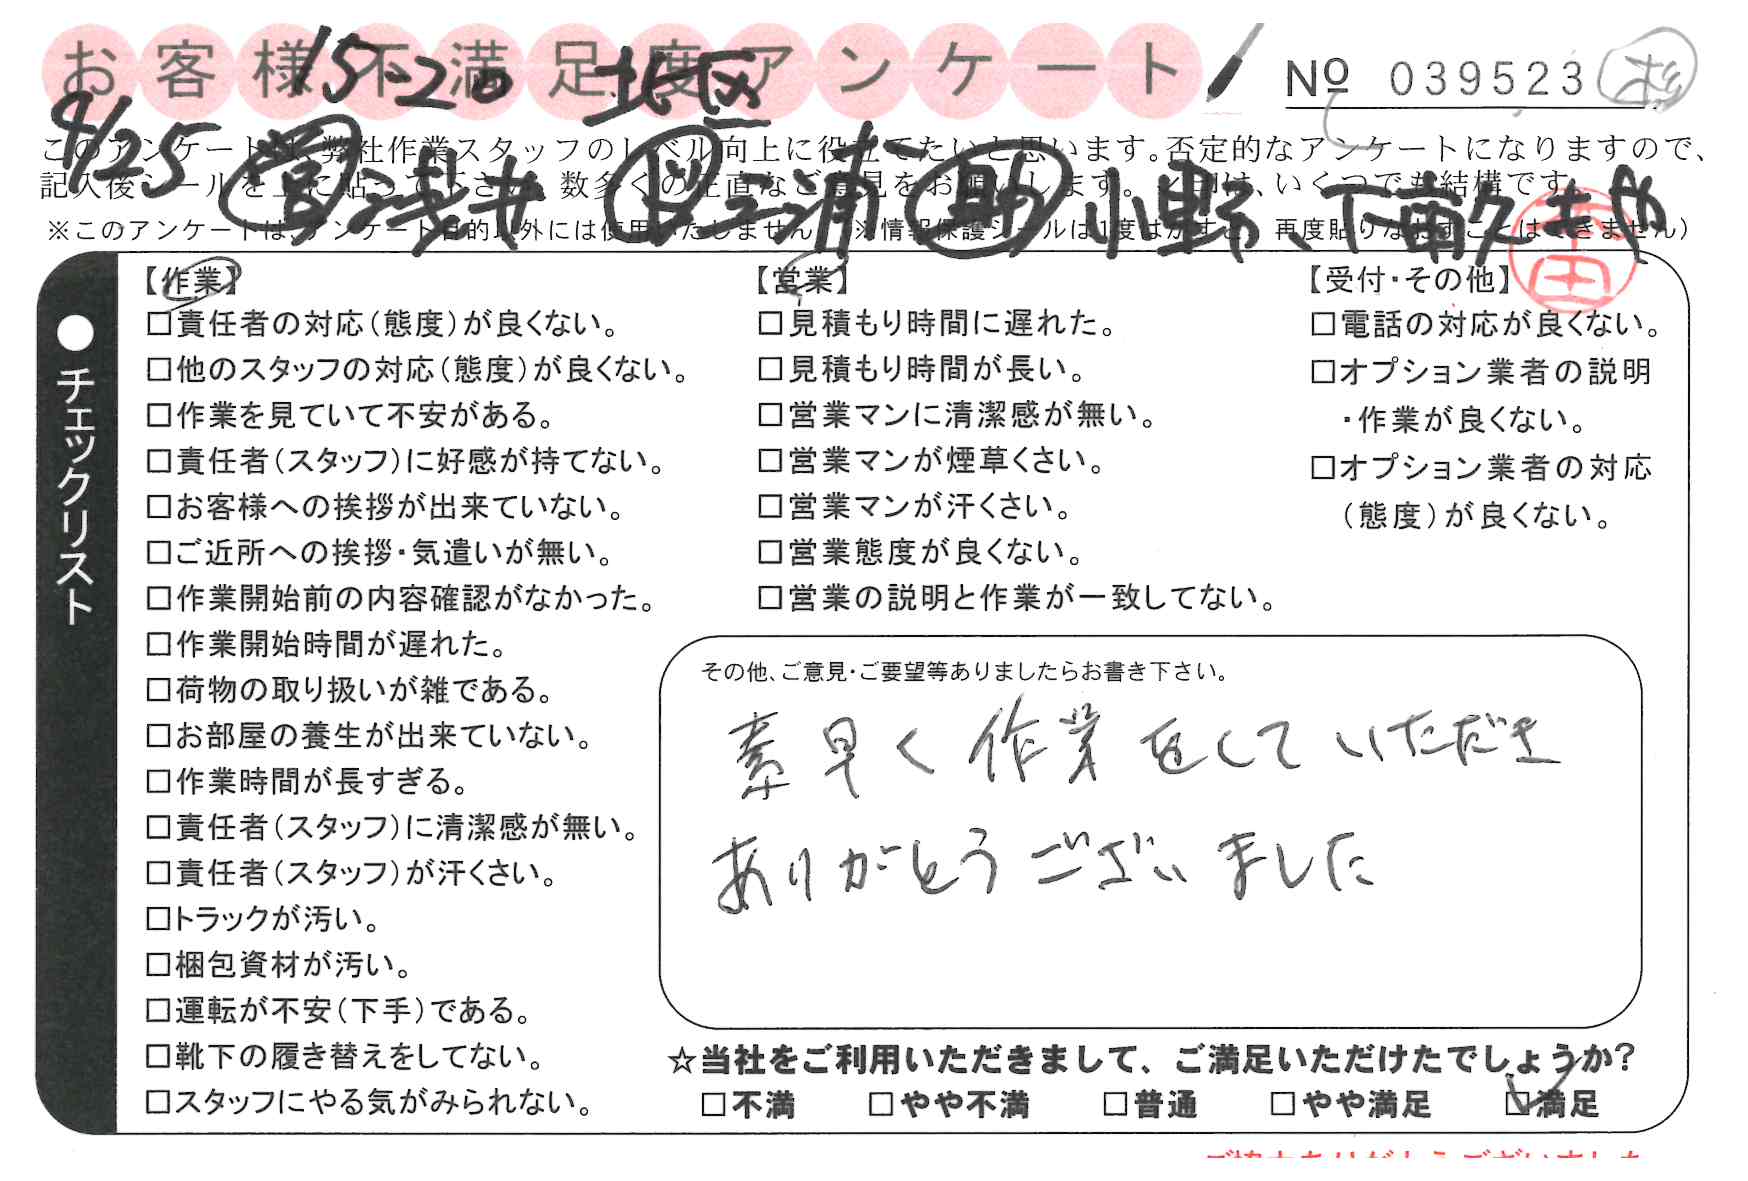 お客様不満足度アンケート
15-20 北区
№ 039523 杉
9/25 営 浅井 ド 三浦 助 小野、下南久
このアンケートは、弊社作業スタッフのレベル向上に役立てたいと思います。否定的なアンケートになりますので、
記入後シールを上に貼って下さい。数多くの正直なご意見をお願いします。レ印は、いくつでも結構です。
※このアンケートは、アンケート目的以外には使用いたしません。(※情報保護シールは1度はがすと、再度貼りなおすことはできません)
●チェックリスト
【作業】
□責任者の対応(態度)が良くない。
□他のスタッフの対応(態度)が良くない。
□作業を見ていて不安がある。
□責任者(スタッフ)に好感が持てない。
□お客様への挨拶が出来ていない。
□ご近所への挨拶・気遣いが無い。
□作業開始前の内容確認がなかった。
□作業開始時間が遅れた。
□荷物の取り扱いが雑である。
□お部屋の養生が出来ていない。
□作業時間が長すぎる。
□責任者(スタッフ)に清潔感が無い。
□責任者(スタッフ)が汗くさい。
□トラックが汚い。
□梱包資材が汚い。
□運転が不安(下手)である。
□靴下の履き替えをしてない。
□スタッフにやる気がみられない。
【営業】
□見積もり時間に遅れた。
□見積もり時間が長い。
□営業マンに清潔感が無い。
□営業マンが煙草くさい。
□営業マンが汗くさい。
□営業態度が良くない。
□営業の説明と作業が一致してない。
【受付・その他】
□電話の対応が良くない。
□オプション業者の説明
・作業が良くない。
□オプション業者の対応
(態度)が良くない。
その他、ご意見・ご要望等ありましたらお書き下さい。
素早く作業をしていただき
ありがとうございました
☆当社をご利用いただきまして、ご満足いただけたでしょうか?
□不満 □やや不満 □普通 □やや満足 ☑満足
ご協力ありがとうございました